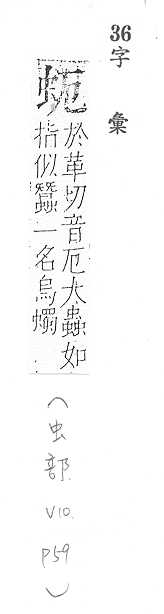 36字彙
蚅
於革切音厄大蟲如
指似蠶一名烏蠋
(虫部. V10. P59)